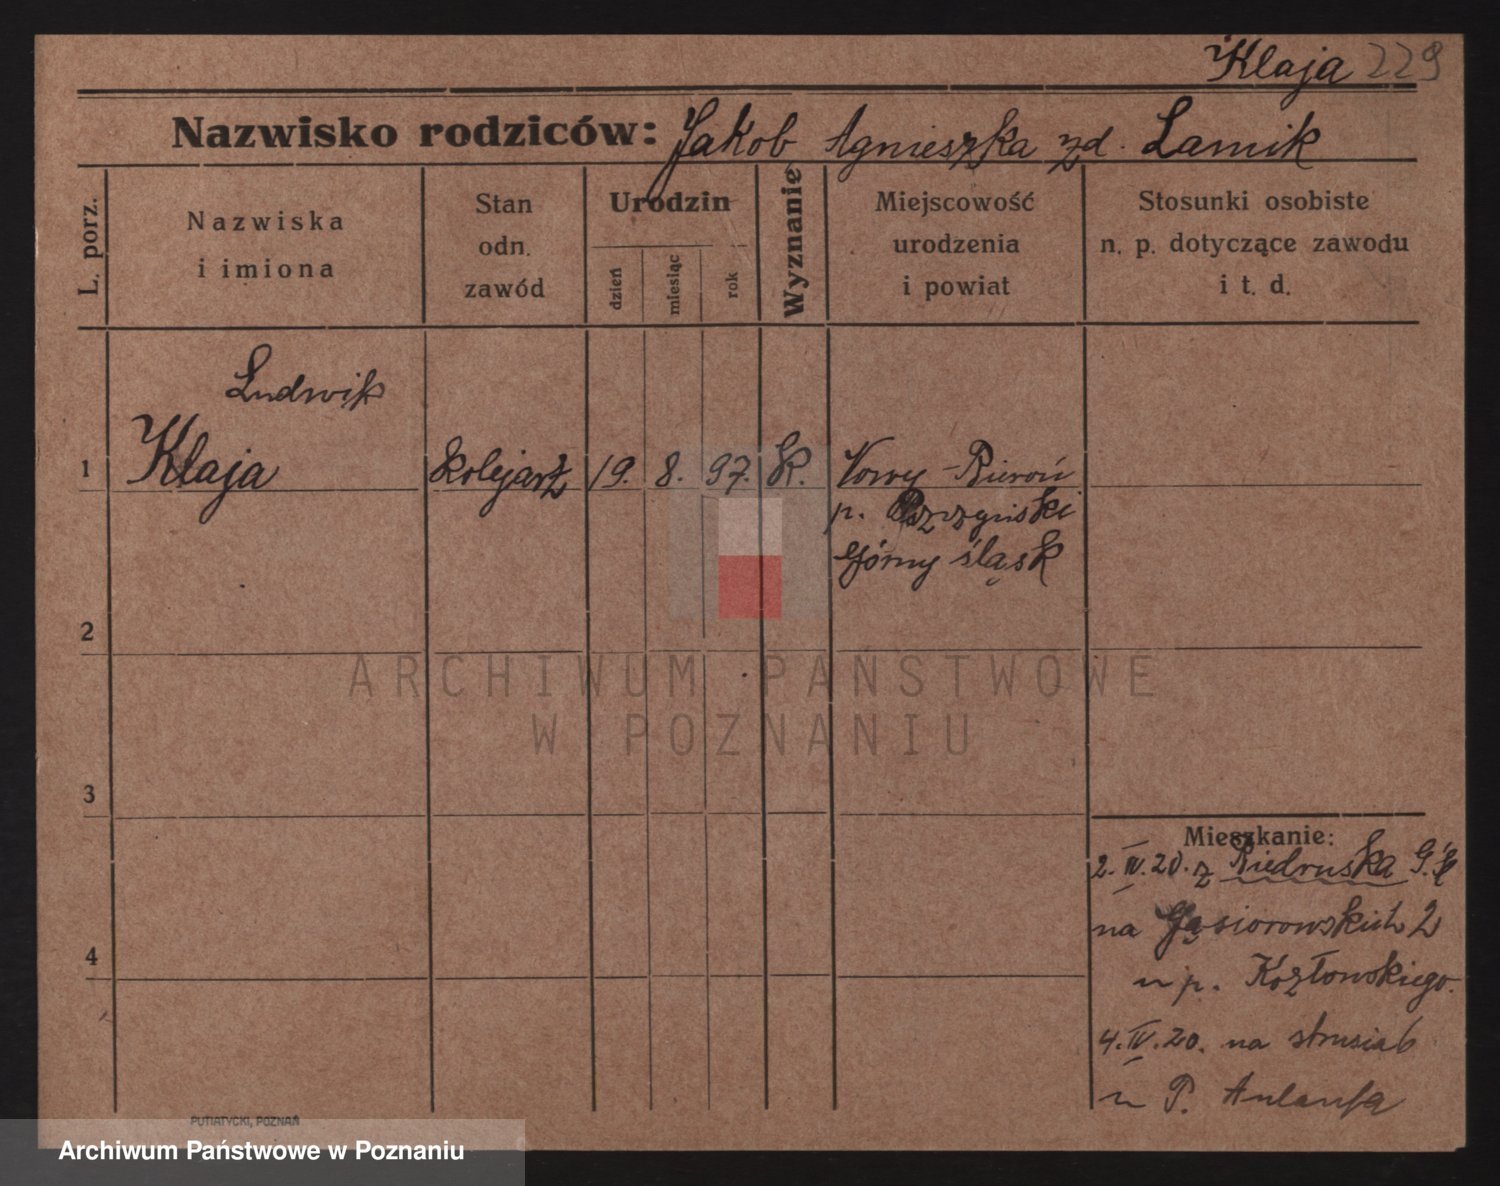 Klaja 229
Nazwisko rodziców: Jakob Agnieszka zd. Lamik
L. porz.
Nazwiska
i imiona
Stan
odn.
zawód
Urodzin
dzień
miesiąc
rok
Wyznanie
Miejscowość
urodzenia
i powiat
Stosunki osobiste
n. p. dotyczące zawodu
i t. d.
Ludwik
1 Klaja kolejarz 19. 8. 97. K. Nowy-Bieruń
p. Pszczyński
Górny śląsk
2
3
4
Mieszkanie:
2.IV.20. z Biedruska G.Śl
na Gąsiorowskich 2
u p. Kozłowskiego.
4.IV.20. na strusia 6
u P.
PUTIATYCKI, POZNAŃ
ARCHIWUM PAŃSTWOWE
W POZNANIU
Archiwum Państwowe w Poznaniu